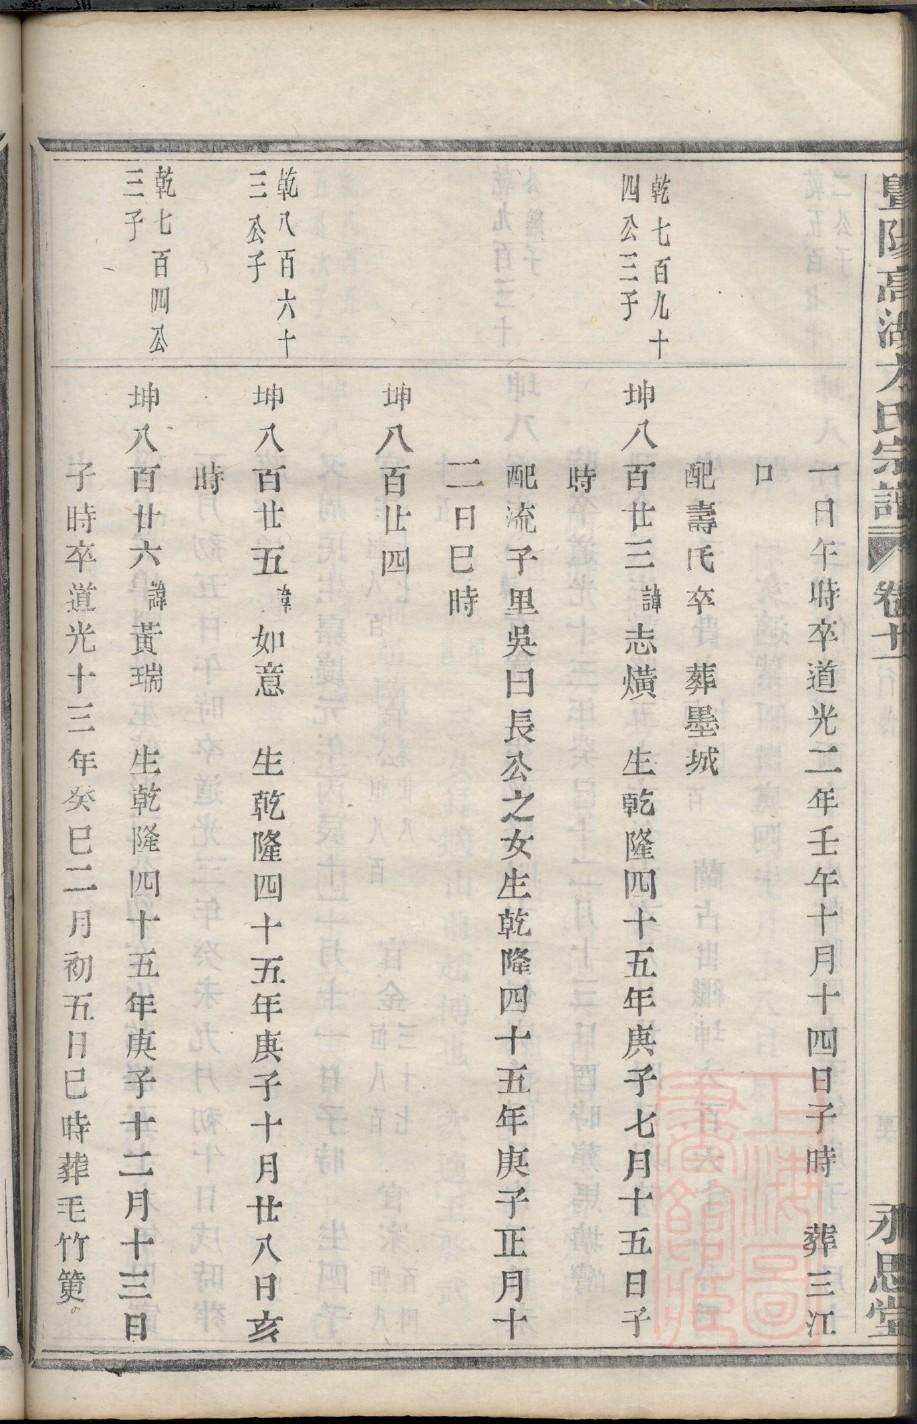 暨陽高湖方氏宗譜 卷十一 永思堂
一日午時卒道光二年壬午十月十四日子時 葬三江
口
配壽氏卒 葬墨城
乾七百九十
四公三子
坤八百廿三諱志熿 生乾隆四十五年庚子七月十五日子
時
配流子里吳日長公之女生乾隆四十五年庚子正月十
二日巳時
坤八百廿四
乾八百六十
三公子
坤八百廿五諱如意 生乾隆四十五年庚子十月廿八日亥
時
乾七百四公
三子
坤八百廿六諱黃瑞 生乾隆四十五年庚子十二月十三日
子時卒道光十三年癸巳二月初五日巳時葬毛竹㘭